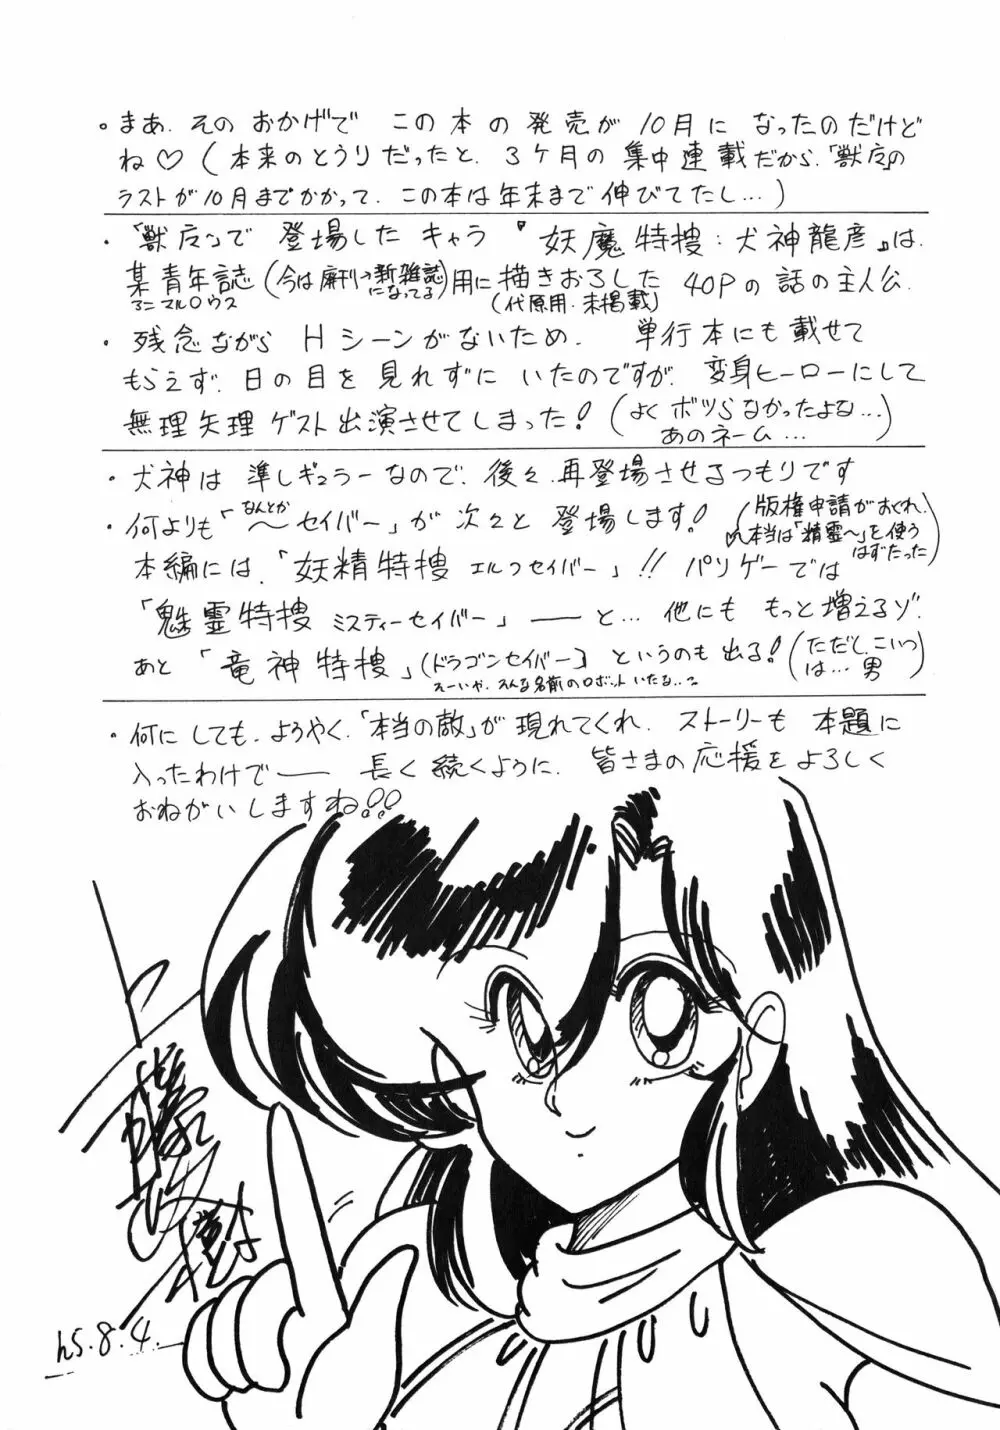 。まあ、そのおかげで この本の発売が 10月に なったのだけど
ね♡（本来のとうりだったと、3ヶ月の集中連載だから、「獣
ラストが10月までかかって、この本は年末まで伸びてたし…）
・ 登場したキャラ『妖魔特捜：犬神龍彦』は、
某青年誌（今は廃刊→新雑誌になってる）用に描きおろした 40Pの話の主人公。
アニマルハウス
（代原用・未掲載）
・残念ながら Hシーンがないため、 単行本にも載せて
もらえず、日の目を見れずに いたのですが、変身ヒーローにして
無理矢理ゲスト出演させてしまった！（よくボツらなかったよな…
あのネーム…）
・犬神は 準レギュラーなので、後々、再登場させるつもりです
・何よりも「〜セイバー」が 次々と 登場します！
なんとか
（版権申請がおくれ、
本当は「精霊〜」を使う
はずだった）
本編には、「妖精特捜 エルフセイバー」!! パソゲーでは
「魅霊特捜 ミスティーセイバー」――と… 他にも もっと増えるゾ。
あと「竜神特捜」（ドラゴンセイバー）というのも出る！（ただし、こいつ
は…男）
えーいや、そんな名前のロボットいたな..?
・何にしても、ようやく、「本当の敵」が現れてくれ、ストーリーも 本題に
入ったわけで―― 長く続くように、皆さまの応援をよろしく
おねがいしますね!!
h5.8.4.